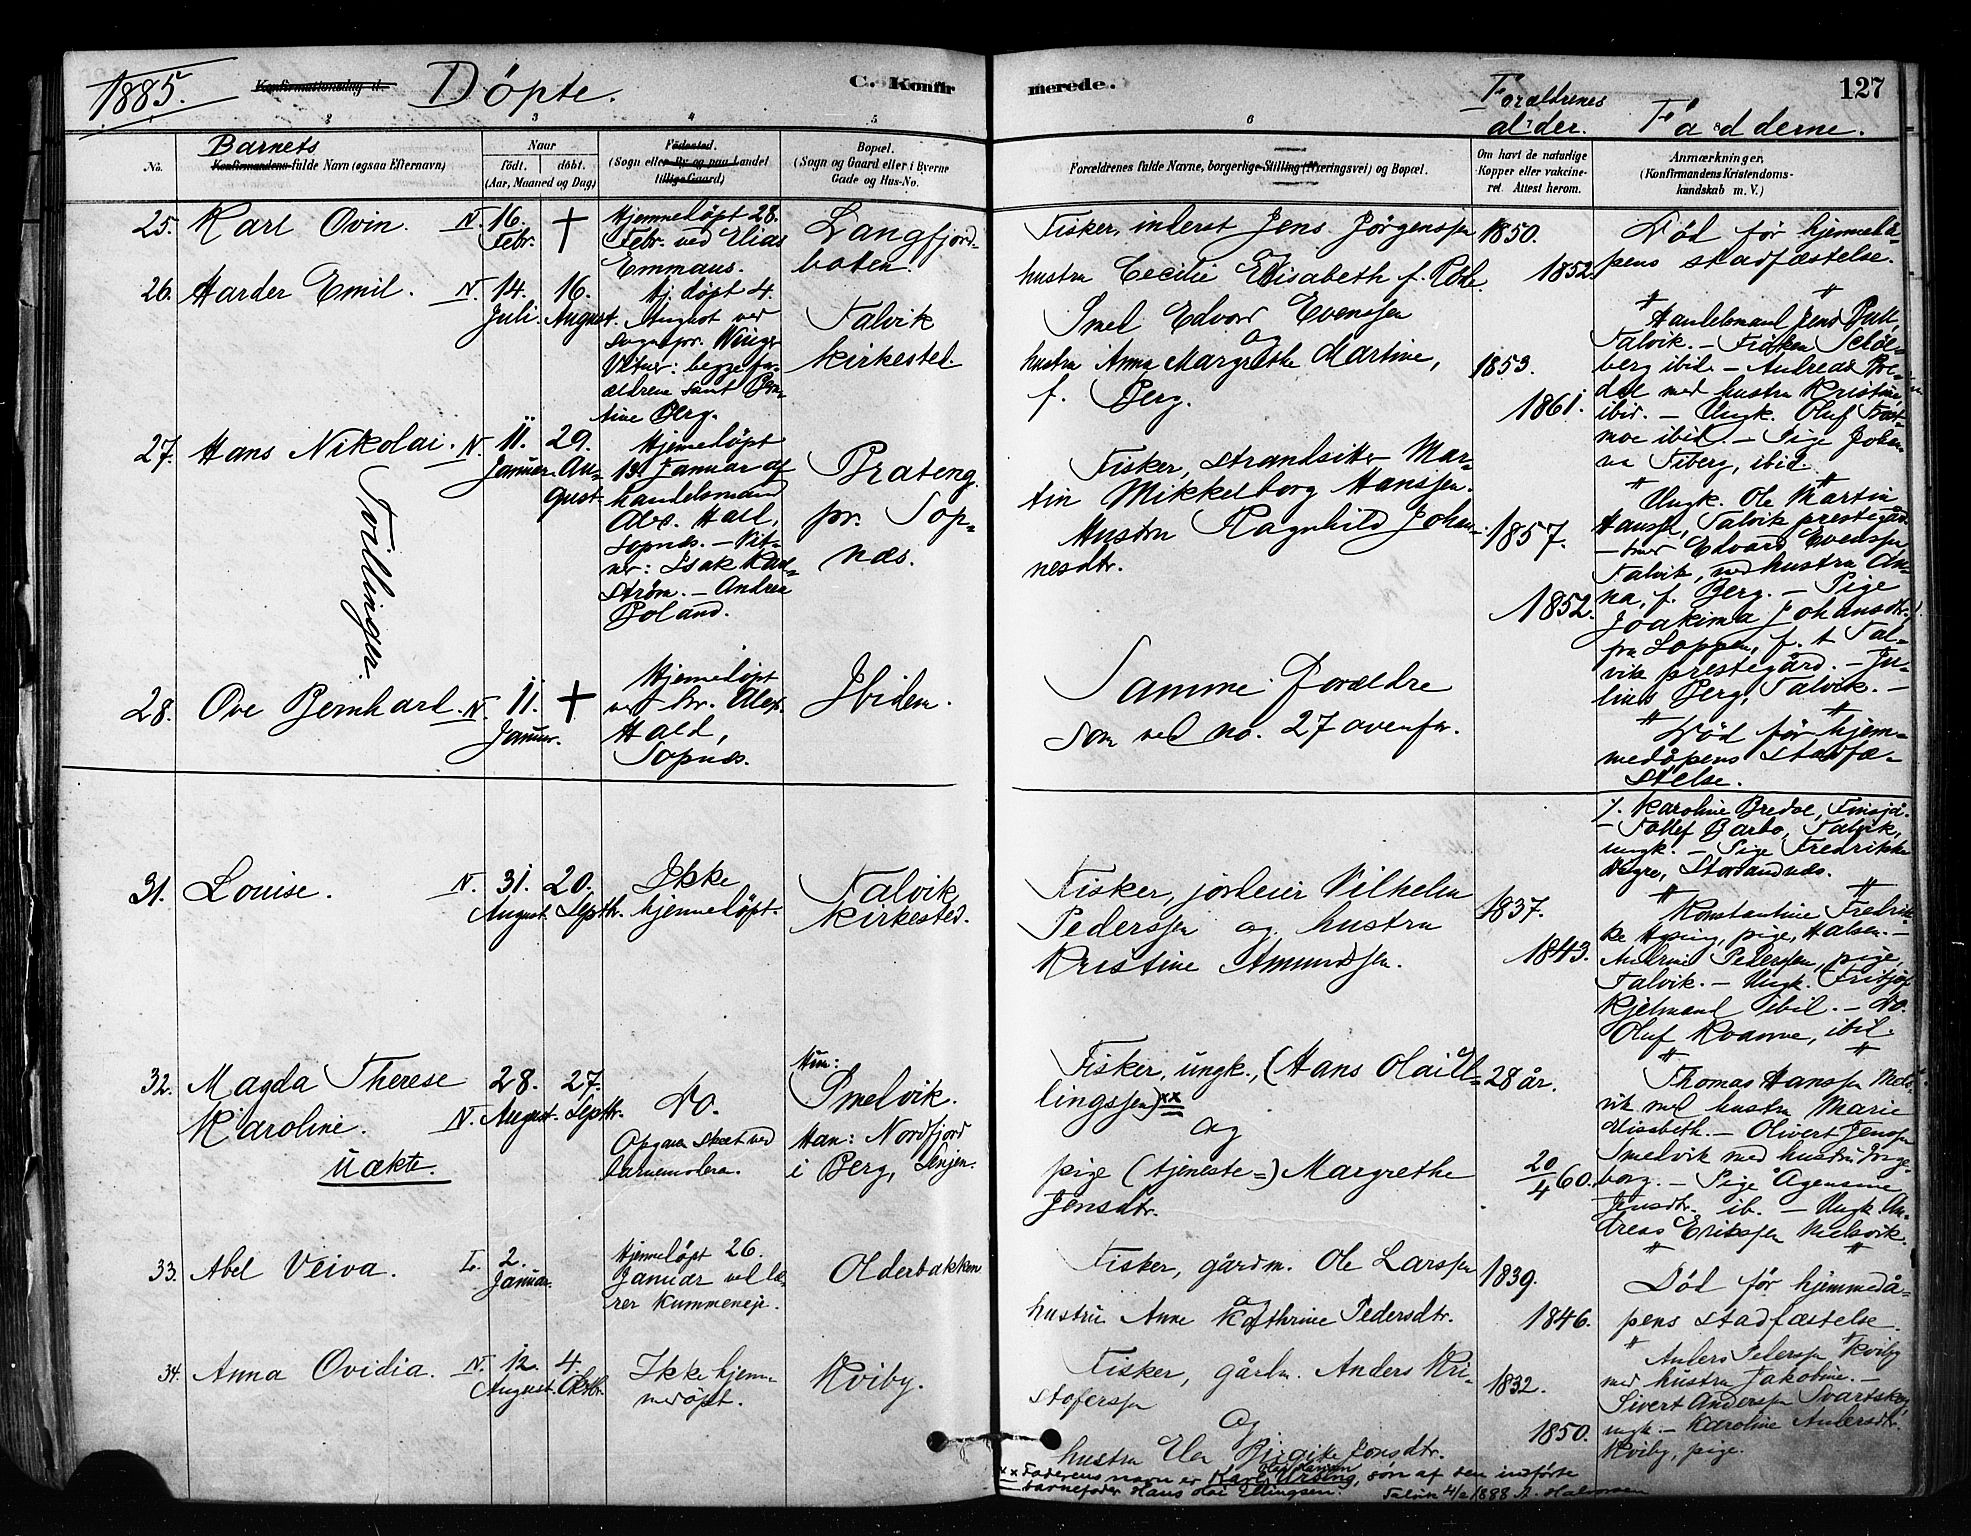 1885.
Konfirmationsdag d.
Döpte.
C. Konfir
merede.
Forældrenes
alder.
Fadderne.
127
2
3
4
5
6
7
8
No.
Barnets
Konfirmandens fulde Navn (ogsaa Efternavn)
Naar
födt.
döbt.
(Aar, Maaned og Dag)
Fødested.
(Sogn eller By og paa Landet
tillige Gaard)
Bopæl.
(Sogn og Gaard eller i Byerne
Gade og Hus-No.
Forældrenes fulde Navne, borgerlige Stilling (Næringsvei) og Bopæl.
Om havt de naturlige
Kopper eller vakcine-
ret. Attest herom.
Anmærkninger,
(Konfirmandens Kristendoms-
kundskab m. V.)
25. Karl Ovin. N. 16.
Febr. +
Hjemmedöpt 28.
Febr. ved Elias
Emmaus.
Langfjord-
boten.
Fisker, inderst Jens Jörgenssen
og
hustru Cecilie Elisabeth f.
1850.
1852.
Död för hjemmedå-
pens stadfæstelse.
26. Harder Emil. N. 14.
Juli.
16.
August.
Hj. döpt 4.
August ved
sognepr. Winge
Vitner: begge fo-
rældrene samt
tine Berg.
Talvik
kirkested.
Smed Edvard Evenssen
og
hustru Anna Margrethe Martine,
f. Berg.
1853.
1861.
Handelsmand Jens
Talvik. – Fröken
berg ibid. – Andreas Bre-
dal med hustru Kristine
ibid. – Ungk. Oluf
moe ibid. – Pige Johan-
na ibid.
27. Hans Nikolai. N. 11.
Januar.
29.
Au-
gust.
Hjemmedöpt
13. Januar af
handelsmand
Alex. Hall,
Sopnæs. – Vit-
ner: Isak
ström. – Andrea
Boland.
Brateng
pr. Sop-
næs.
Fisker, strandsitter Mar-
tin Mikkelborg Hanssen.
Hustru Ragnhild Johan-
nesdtr.
1857.
1852.
Ungk. Ole Martin
Hanssen, Talvik prestegård
– smed Edvard Evenssen
Talvik, med hustru An-
na, f. Berg. – Pige
Joakima Johansdtr.
fra Loppen, f. t. Tal-
vik prestegård. – Ju-
lius Berg, Talvik. –
Tvillinger.
28. Ove Bernhard. N. 11.
Januar. +
Hjemmedöpt
ved hr. Alex.
Hald,
Sopnæs.
Ibidem.
Samme forældre
som ved no. 27 ovenfor.
Död för hjem-
medåpens stadfæ-
stelse.
Karoline Bredal,
– Tollef Barbo, Talvik,
ungk. – Pige Fredrikke
31. Louise. N. 31.
August.
20.
Septbr.
Ikke
hjemmedöpt.
Talvik
kirkested.
Fisker, jordeier Vilhelm
Pederssen og hustru
Kristine Amundsen.
1837.
1843.
Konstantine Fredrik-
ke pige, Halsen. –
Andrine Pederssen, pige,
Talvik. – Ungk. Fritjof
Kjelmand ibid. – Do.
Oluf ibid.
32. Magda Therese
Karoline.
uækte.
N. 28.
August.
27.
Septbr.
Do.
Opgaven skeet ved
barnemoderen.
Hun:
Smelvik.
Han: Nordfjord
i Berg, Senjen.
Fisker, ungk., (Hans Olai El-
lingssen) xx
og
pige (tjeneste-) Margrethe
Jensdtr.
28 år.
20/4 60.
Thomas Hanssen
med hustru Marie
Elisabeth. – Olivert Jenssen
Smedvik med hustru Inge-
borg. – Pige Agensine
Jensdtr. ib. – Ungk. An-
dreas Erikssen Melsvik.
33. Abel Veiva. L. 2.
Januar.
Hjemmedöpt 26.
Januar ved læ-
rer Kummeneje.
Olderbakken
Fisker, gårdm. Ole Larssen
og
hustru Anne Kathrine Pedersdtr.
1839.
1846.
Död för hjemmedå-
pens stadfæstelse.
34. Anna Ovidia. N. 12.
August.
4.
Oktbr.
Ikke hjem-
medöpt.
Kviby.
Fisker, gårdm. Anders Kri-
stoferssen
og
hustru Elen Birgitte Jonsdtr.
1832.
1850.
Anders Pederssen Kviby
med hustru Jakobine. –
Sivert Anderssen Svartskog,
ungk. – Karoline Andersdtr.
Kviby, pige.
xx Faderens navn er Karl søn af den indførte
barnefader Hans Olai Ellingsen. Talvik 4/2 1888 A. Halvorsen